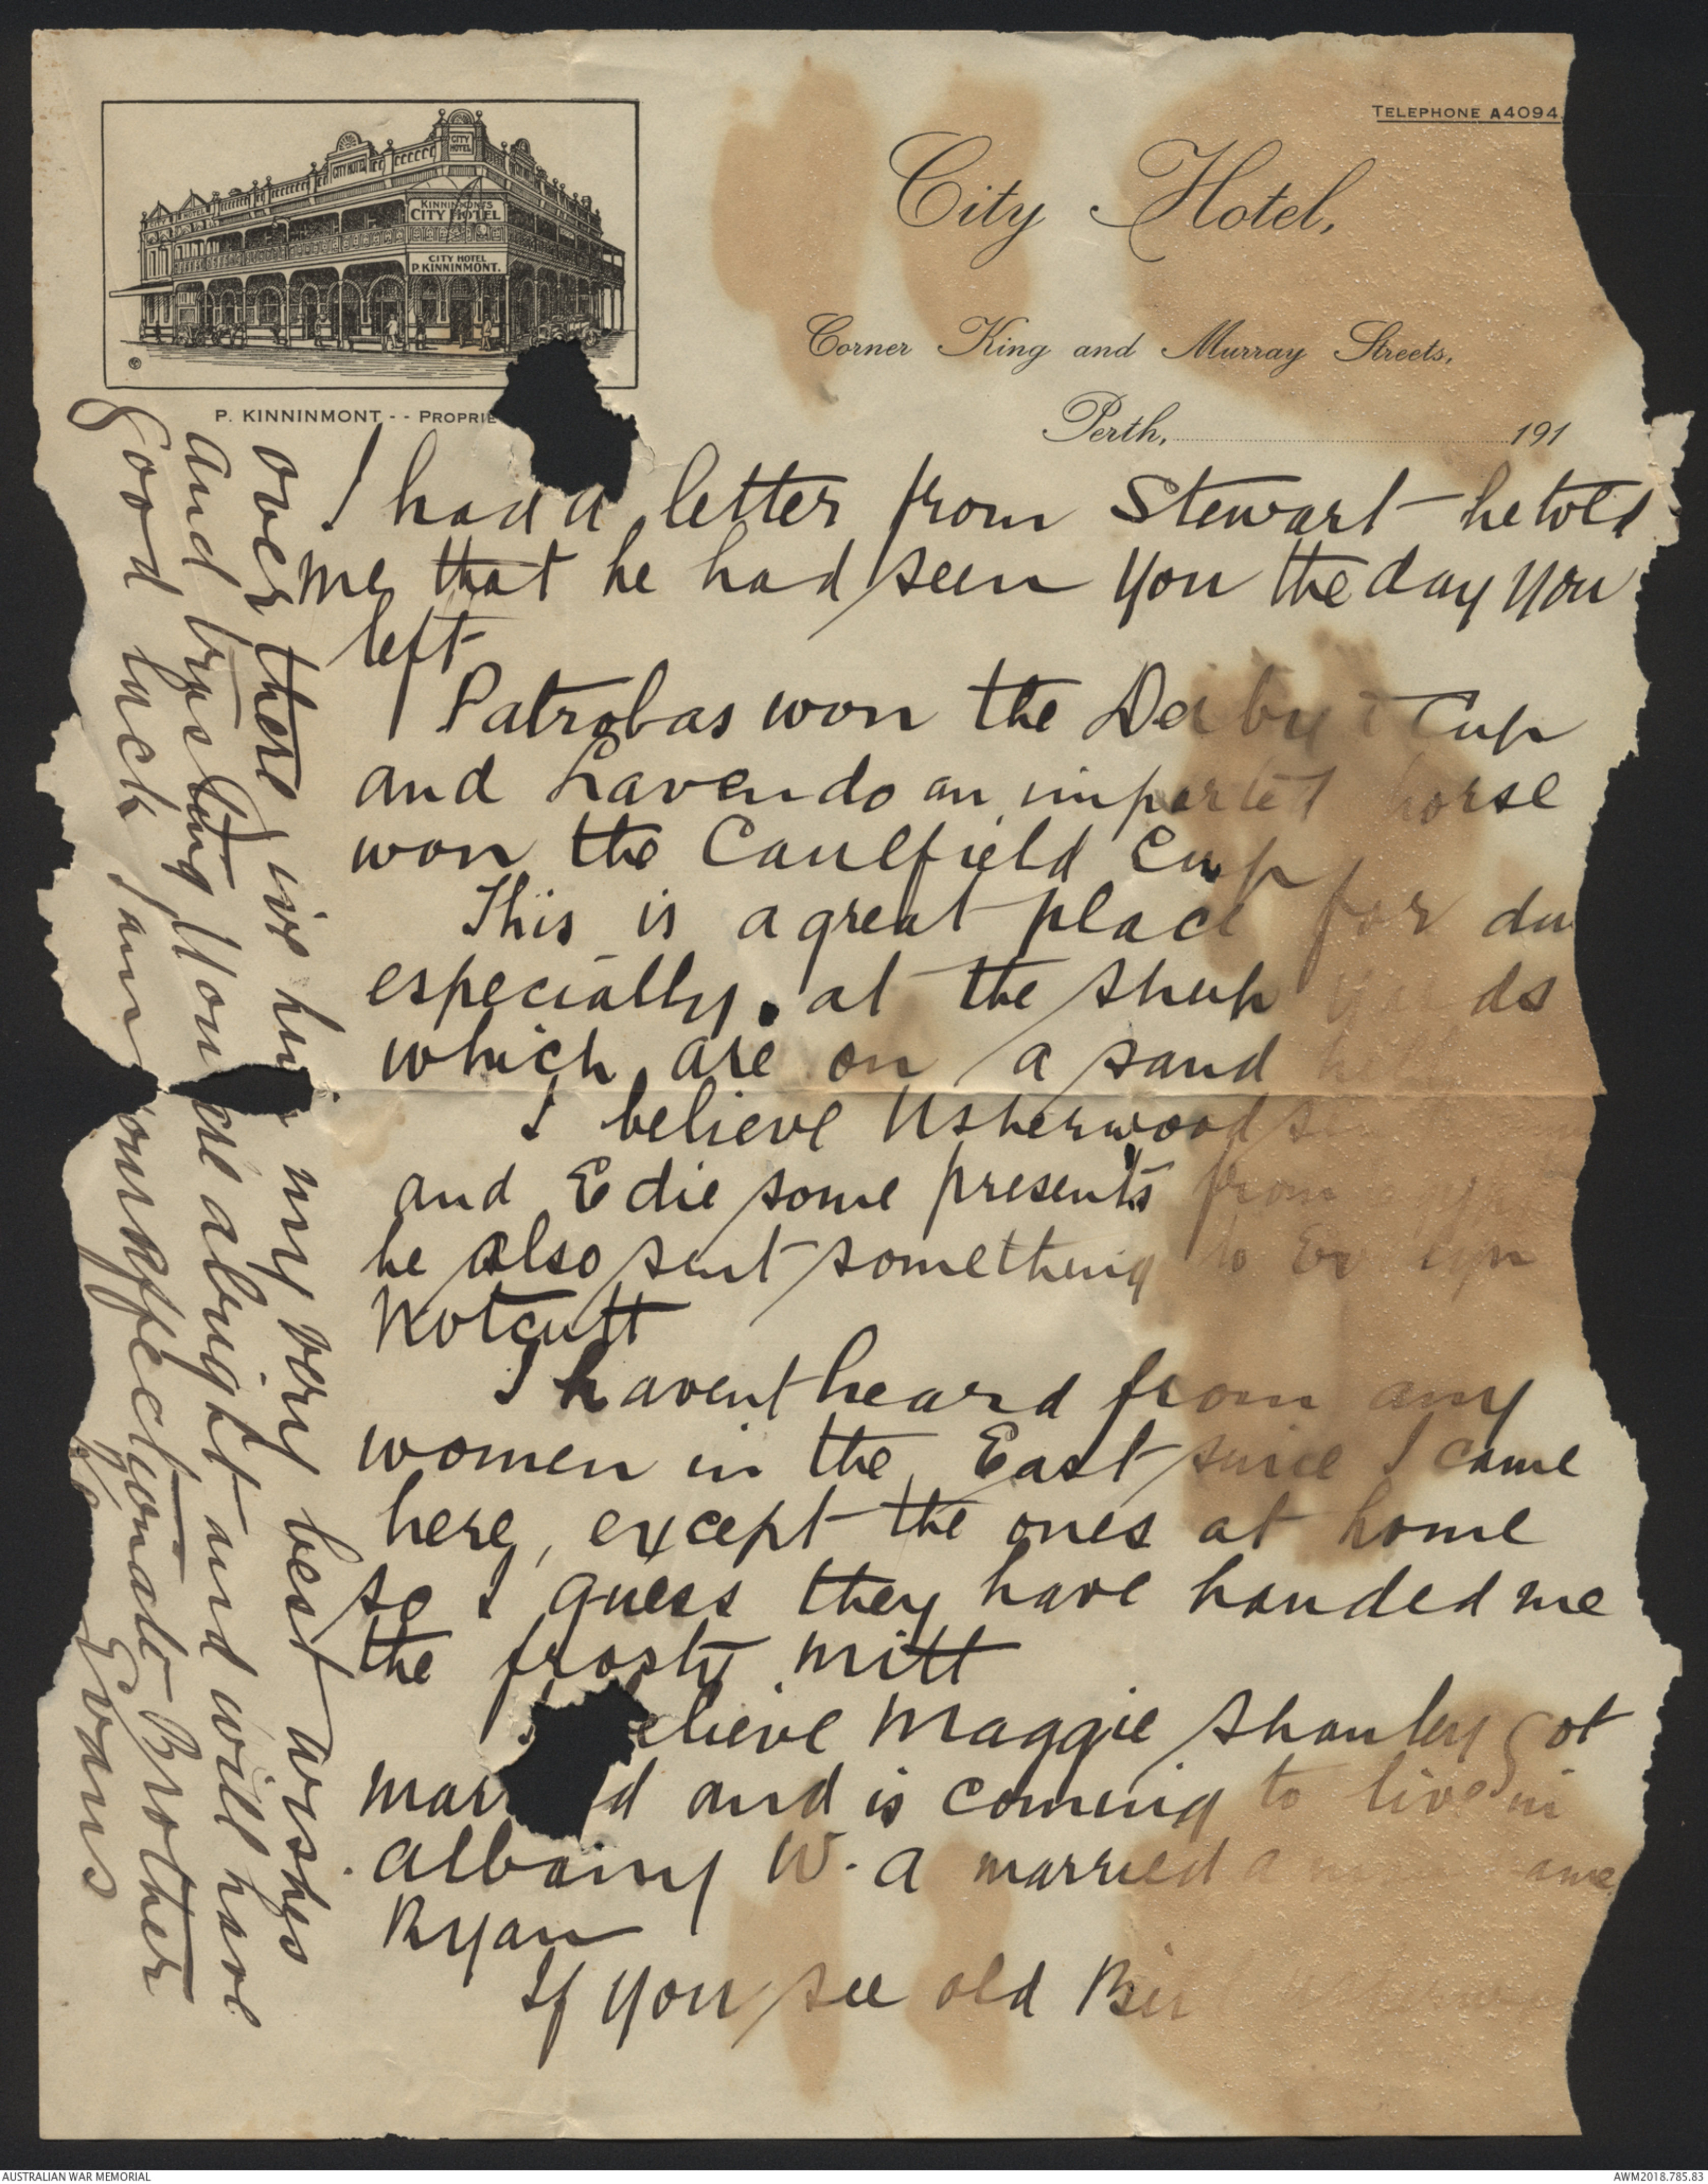 TELEPHONE A4094
City Hotel,
Corner King and Murray Streets,
Perth, 191
CITY HOTEL
CITY HOTEL
KINNINMONTS
CITY HOTEL
CITY HOTEL
P. KINNINMONT.
P. KINNINMONT - - PROPRIE
I had a letter from Stewart he told
me that he had seen you the day you
left
Patrobas won the Derby & Cup
and Lavendo an imported horse
won the Caulfield Cup
This is a great place for du
especially. at the sheep yards
which are on a sand
I believe Usherwood
and Edie some presents from
he also sent something to
Notcutt
I havent heard from any
women in the East since I came
here, except the ones at home
so I guess they have handed me
the frosty mitt
elieve Maggie Shanley got
mar d and is coming to live in
albany W. A married a
Ryan
If you see old
over there give him my very best wishes
and trusting you are alright and will have
good luck I am your affectionate Brother
Evans
AUSTRALIAN WAR MEMORIAL
AWM2018.785.83